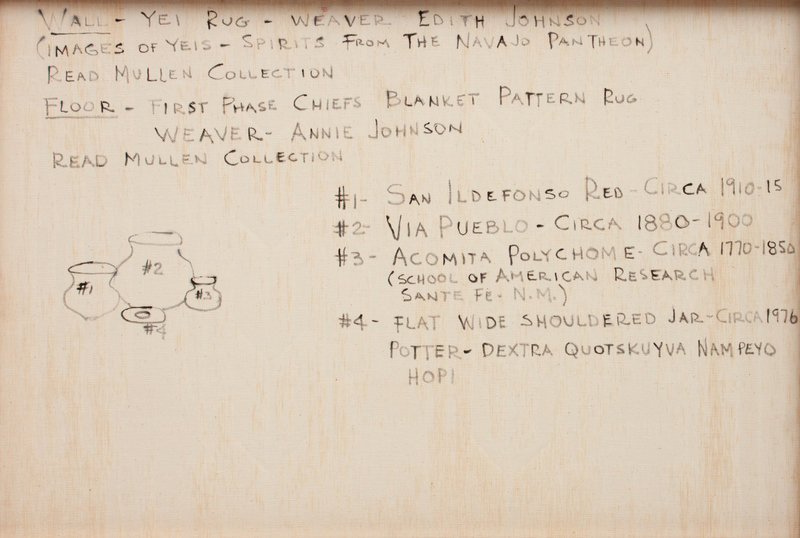 WALL - YEI RUG - WEAVER EDITH JOHNSON
(IMAGES OF YEIS - SPIRITS FROM THE NAVAJO PANTHEON)
READ MULLEN COLLECTION
FLOOR - FIRST PHASE CHIEFS BLANKET PATTERN RUG
WEAVER - ANNIE JOHNSON
READ MULLEN COLLECTION
#1- SAN ILDEFONSO RED - CIRCA 1910-15
#2- VIA PUEBLO - CIRCA 1880-1900
#3- ACOMITA POLYCHOME - CIRCA 1770-1850
(SCHOOL OF AMERICAN RESEARCH
SANTE FE - N.M.)
#4- FLAT WIDE SHOULDERED JAR - CIRCA 1976
POTTER - DEXTRA QUOTSKUYVA NAMPEYO
HOPI
#2
#1
#3
#4